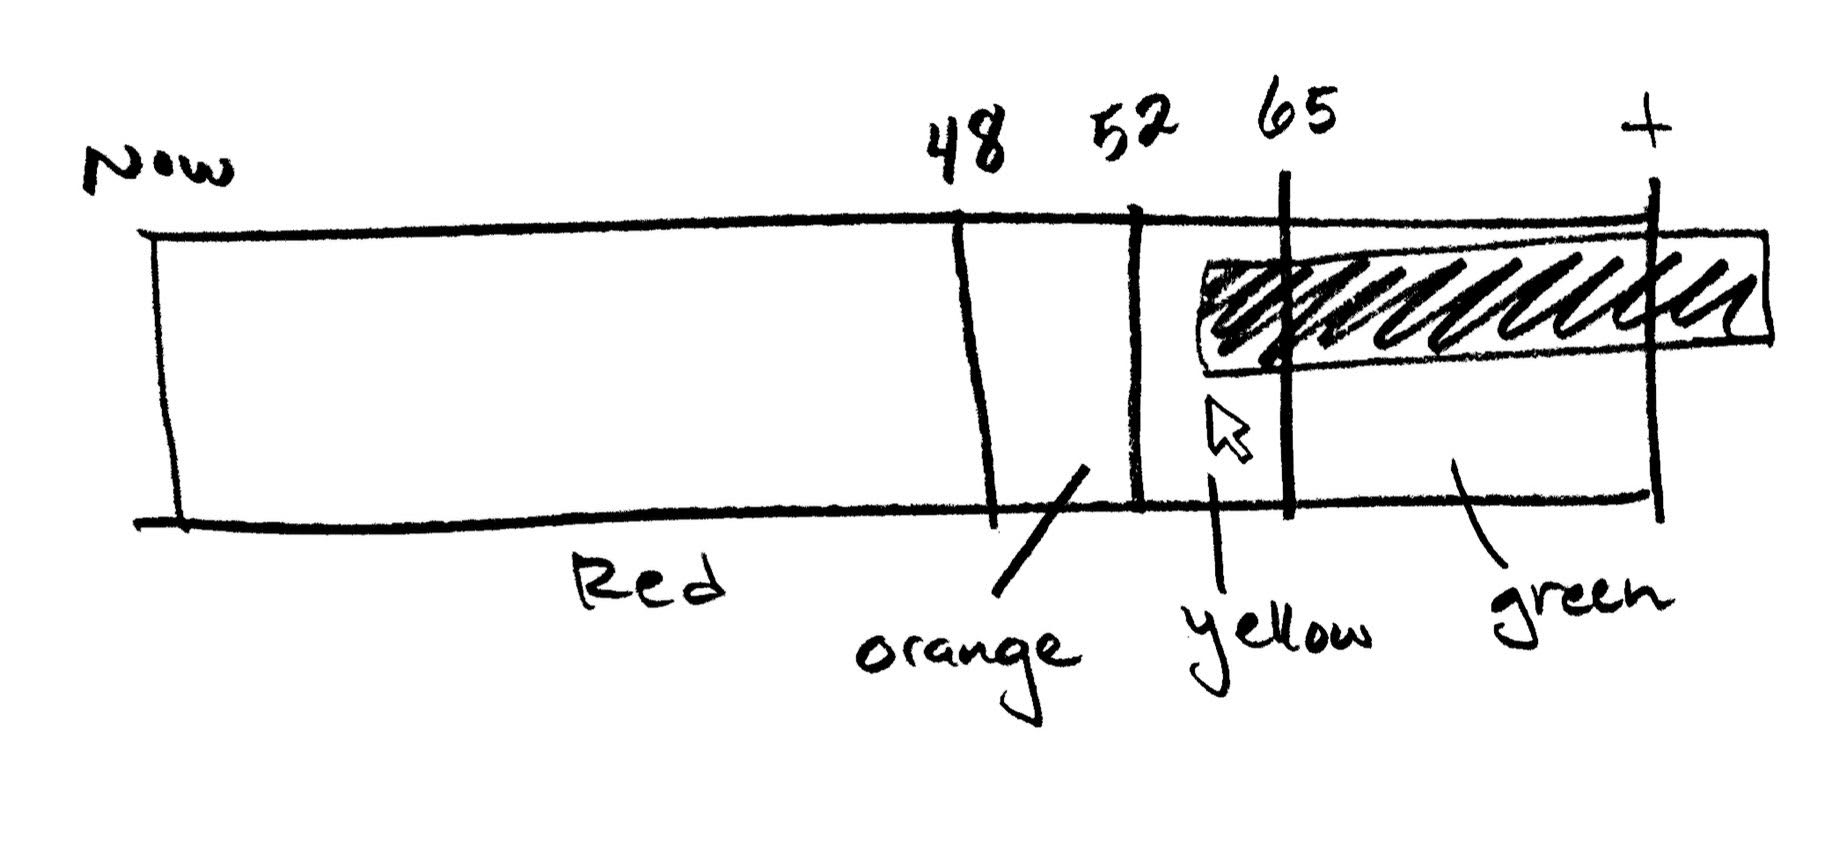 Now
48
52
65
+
Red
orange
yellow
green